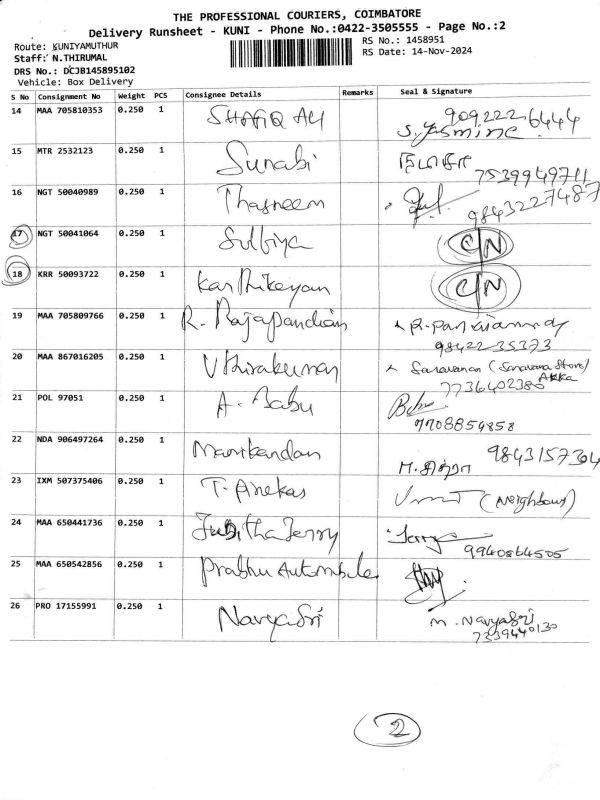 THE PROFESSIONAL COURIERS, COIMBATORE
Delivery Runsheet - KUNI - Phone No.:0422-3505555 - Page No.:2
Route: KUNIYAMUTHUR
RS No.: 1458951
Staff: N.THIRUMAL
RS Date: 14-Nov-2024
DRS No.: DCJB145895102
Vehicle: Box Delivery
S No Consignment No Weight PCS Consignee Details Remarks Seal & Signature
14 MAA 705810353 0.250 1 SHAFIQ Ali 9092226444
S. Yasmine
15 MTR 2532123 0.250 1 Sunabi
7539949711
16 NGT 50040989 0.250 1 Thasneem
9843227487
17 NGT 50041064 0.250 1 Sulbiya C/N
18 KRR 50093722 0.250 1 Karthikeyan C/N
19 MAA 705809766 0.250 1 R. Rajapandian
9842235373
20 MAA 867016205 0.250 1 V Thirakumar Saravanan (Saravana Store)
7736402380 Akka
21 POL 97051 0.250 1 A. Babu
7708859858
22 NDA 906497264 0.250 1 Manikandan 9843157304
23 IXM 507375406 0.250 1 T. Anekas (Neighbour)
24 MAA 650441736 0.250 1 Jubitha Jerry
9940864505
25 MAA 650542856 0.250 1 Prabhu Automobile
26 PRO 17155991 0.250 1 NavyaSri M. NavyaSri
7339440130
2